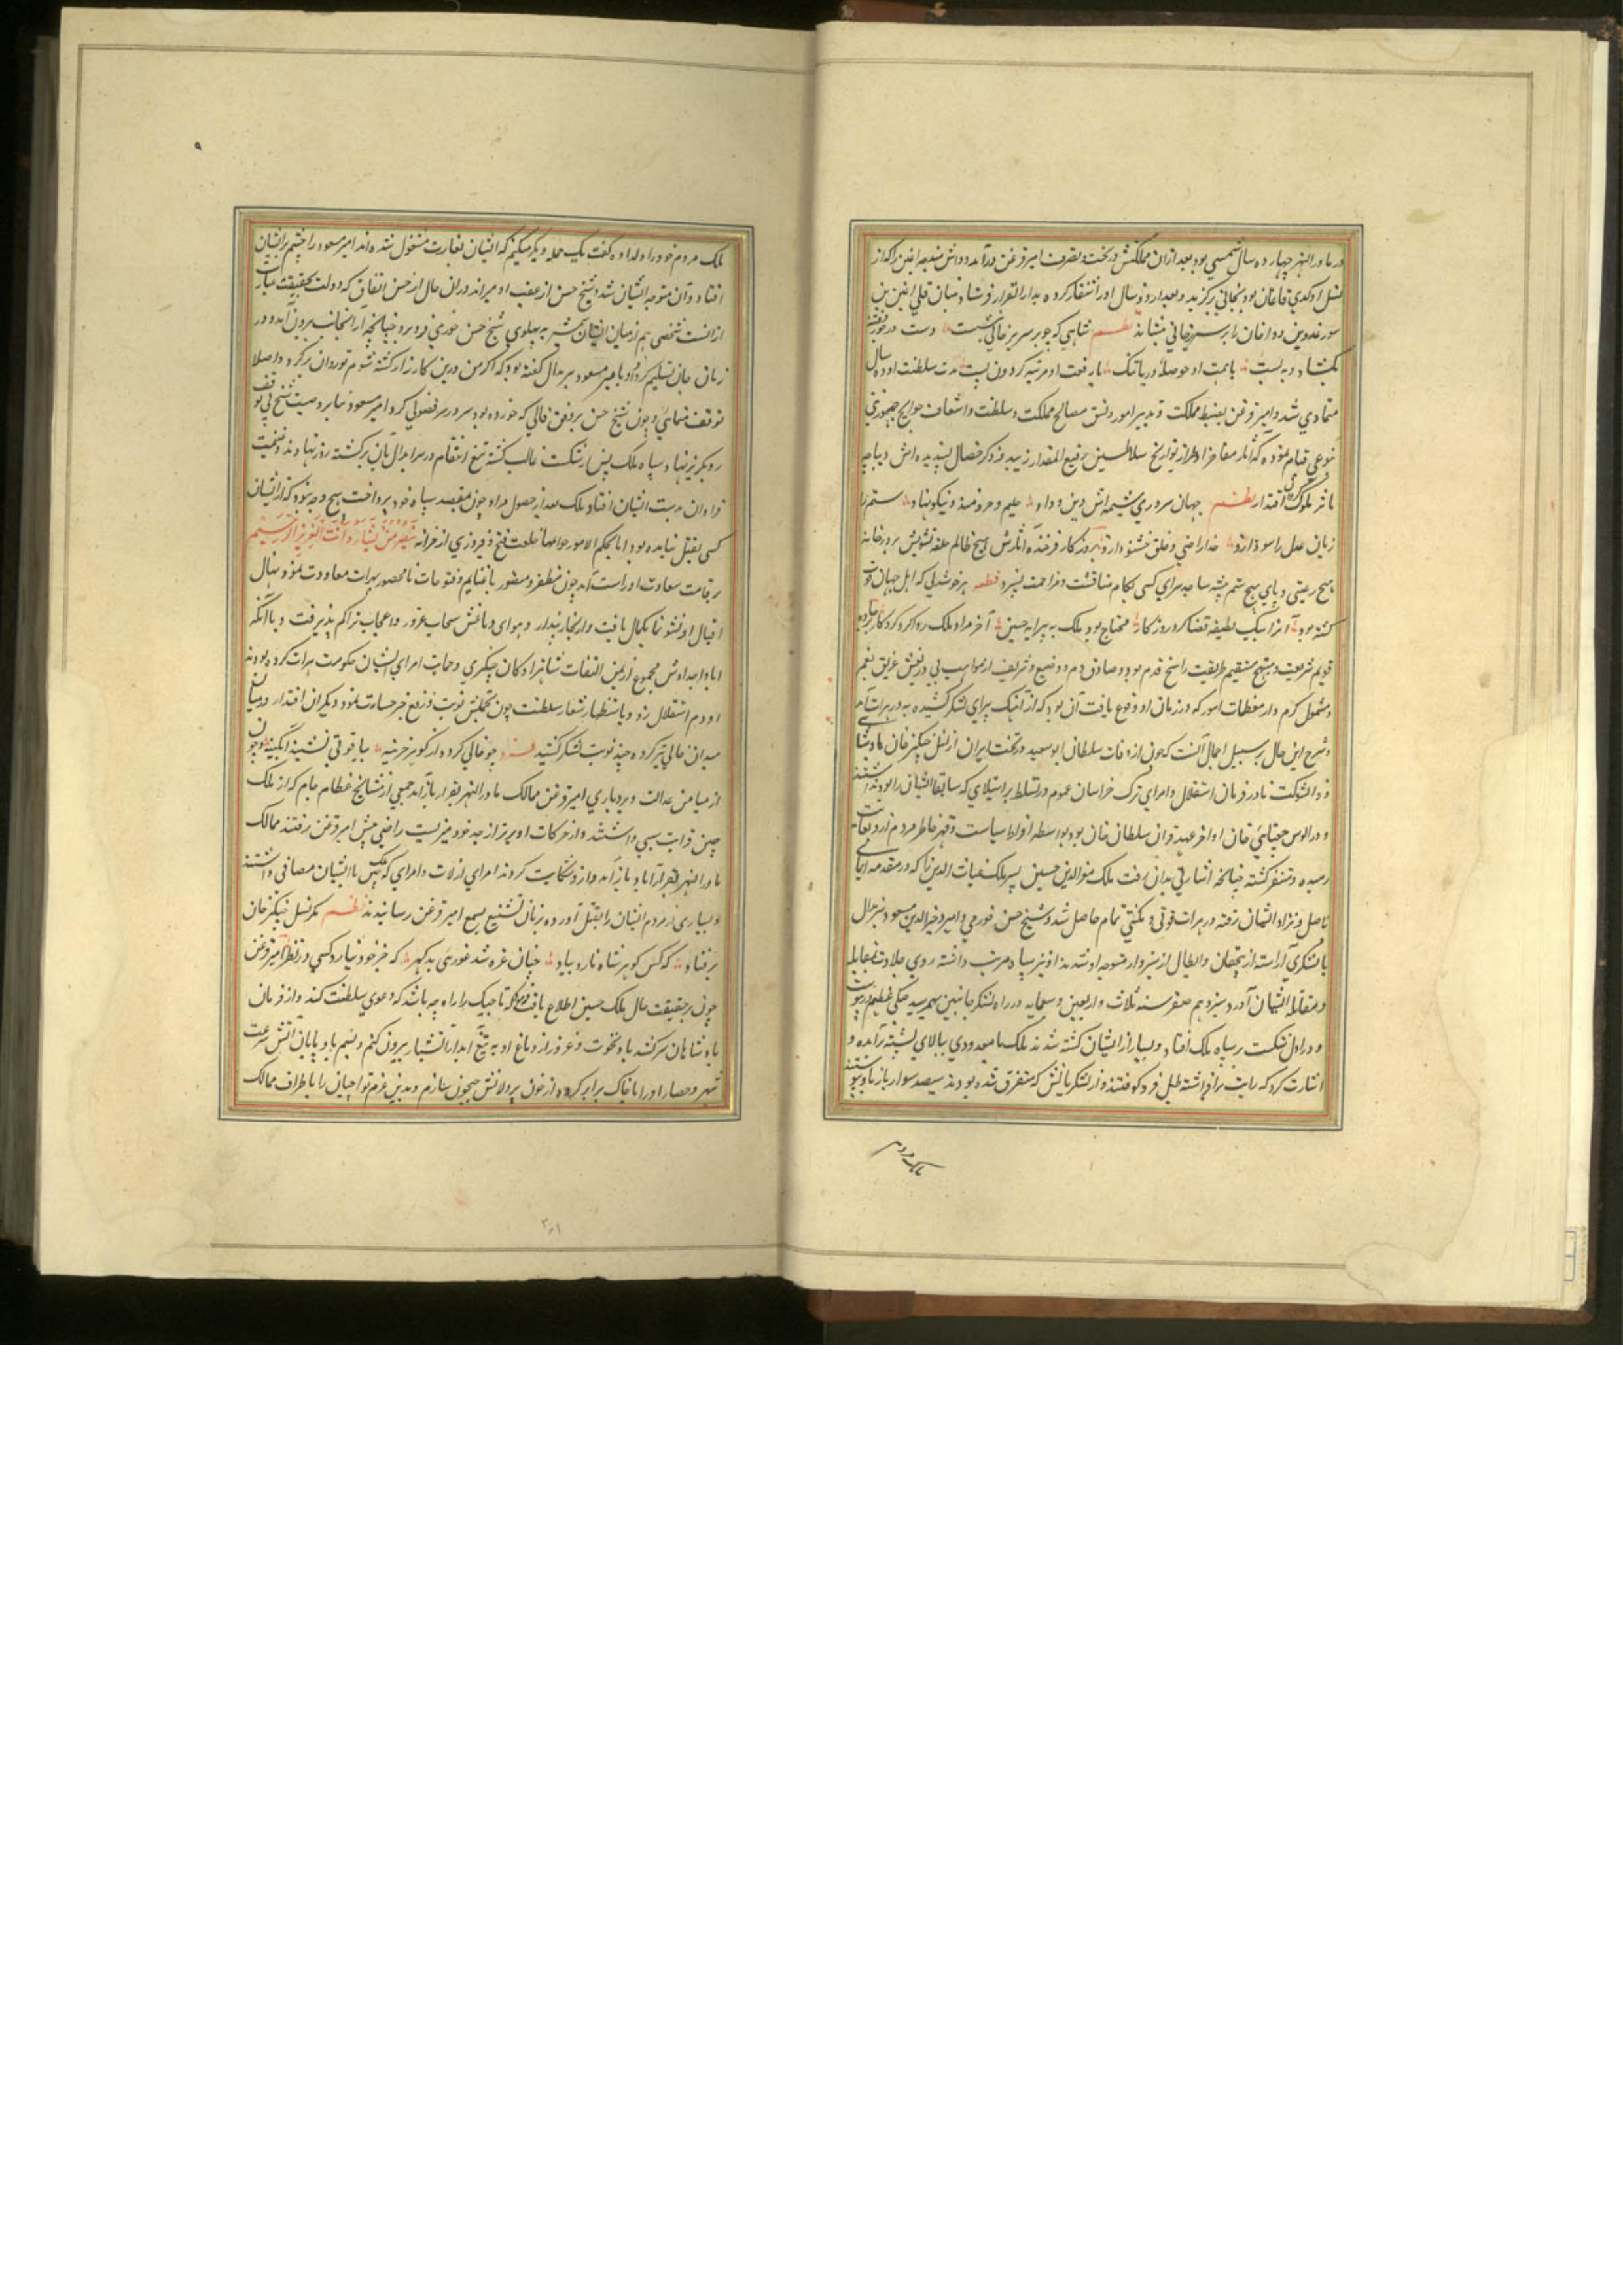 در ماوراء النهر چهارده سال شمسی بود بعد ازان مملکتش در تحت تصرف امیر قزغن درآمد و دانشمندجه اغلن را که از
نسل اوکدی قاآن بود بخانی برگزید و بعد از دو سال او را شنقار کرده بدار القرار فرستاد و بیان قلی اغلن بن
سورغدو بن دوا خان را بر سریر خانی بنشاند نظم شاهی که چو بر سریر خانی بنشست دست در
بکشاد و به بست با همت او حوصله دریا تنک با رفعت او مرتبه کردون پست مدت سلطنت او ده سال
متمادی شد و امیر قزغن بضبط مملکت و تدبیر امور و نسق مصالح مملکت و سلطنت و اسعاف حوایج جمهور
نوعی قیام نموده که آثار مفاخر او طراز تواریخ سلاطین رفیع المقدار زیبد و ذکر خصال پسندیده اش دیباجه
مآثر ملوک اقتدار نظم جهان سروری شیمه اش دین و داد حلیم و خردمند و نیکو نهاد ستم را
زبان عدل را سود ازو خدا راضی و خلق خشنود ازو بروزکار فرخنده آثارش هیچ ظالم حلقه تشویش بر در خانه
هیچ رعیتی و پای هیچ ستم پیشه ساحه سرای کسی بکام مناقشت و مزاحمت نسپرد قطعه هر خوشدلی که اهل جهان
کشته بود آنرا بیک لطیفه قضا کرد روزکار محتاج بود ملک به پیرایه چنین آخر مراد ملک روا کرد کردکار
قویم شریعت و منهج مستقیم طریقت راسخ قدم بود و صادق دم و وضیع و شریف از مواهب بی دریغش غریق نعم
و مشمول کرم و از معظمات امور که در زمان او وقوع یافت آن بود که از آهنک برای لشکر کشیده به در هرات آمد
و شرح این حال بر سبیل اجمال آنست که چون از وفات سلطان ابو سعید در تخت ایران از نسل چنکیز خان پادشاهی
ذو الشوکت نافذ فرمان استقلال و امرای ترک خراسان عموم در تسلط بر استیلای که سابقا ایشان را بود نداشتند
و در الوس جغتای قزان سلطان خان بود بواسطه افراط سیاست و قهر خاطر مردم از او بغایت
رمیده و متنفر کشته چنانچه اشارتی بدان رفت ملک معز الدین حسین پسر ملک غیاث الدین را که در مقدمه ایمایی
باصل و نژاد ایشان رفته در هرات قوتی و مکنتی تمام حاصل شد و شیخ حسن جوری و امیر وجیه الدین مسعود سربدال
با لشکری آراسته از پنجقان و ابطال از سبزوار متوجه او شدند او نیز سپاه مرتب داشته روی جلادت بمقابله
و مقاتله ایشان آورد سیزدهم صفر سنه ثلاث و اربعین و سبعمایه در راه لشکر جانبین بهم رسیده جنکی عظیم
و در اول شکست بر سپاه ملک افتاد و بسیار از ایشان کشته شدند ملک با معدودی ببالای پشته برآمده و
اشارت کرد که رایت برافراشته طبل فرو کوفتند و از لشکریانش که متفرق شده بودند سیصد سوار باز باو پیوستند
ملک مردم
ملک مردم خود را دل داده کفت یک حمله دیکر میکنیم که ایشان بغارت مشغول شده اند امیر مسعود را چشم بر ایشان
افتاد و آن متوجه ایشان شد و شیخ حسن از عقب او میراند دران حال از حسن اتفاق که دولت بحقیقت عبارت
از آنست شخصی هم از میان ایشان شمشیر به پهلوی شیخ حسن جوری فرو برد چنانچه از آنجانب بیرون آمد و در
زمان جان تسلیم کرد و او با امیر مسعود سربدال کفته بود که اکر من درین کارزار کشته شوم تو روان برکرد و اصلا
توقف منمای و چون شیخ حسن بر وفق فالی که خود زده بود سر در سر فضولی کرد امیر مسعود بنابر وصیت شیخ بی توقف
رو بکریز نهاد و سپاه ملک پس از شکست غالب کشته تیغ انتقام در سربدالیان برکشته روز نهادند و غنیمت
فراوان بدست ایشان افتاد و ملک بعد از حصول مراد چون بمقصد سپاه خود پرداخت هیچ وجه نبود که از ایشان
کسی بقتل نیامده بود اما بحکم الامور خلعت فتح و فیروزی از خزانه ینصر من یشاء و هو العزیز الرحیم
بر قامت سعادت او راست آمد چون مظفر و منصور با غنایم و فتوحات نامحصور بهرات معاودت نمود نهال
اقبال او نشو نما بکمال یافت و از بخار پندار در هوای دماغش سحاب غرور و اعجاب تراکم پذیرفت و با آنکه
آبا و اجدادش مجموع از یمن التفات شاهزادکان چنکیزی و حمایت امرای ایشان حکومت هرات کرده بودند
او دم استقلال زد و باستظهار شعار سلطنت چون تجملش نوبت زدن رفع خبر جسارت نمود و دیکران اقتدار و
میدان خالی تیز کرده چند نوبت لشکر کشید چو خالی کردد از کوهر خزینه بیاقوتی نشیند آبکینه و چون
از میامن عدالت و بردباری امیر قزغن ممالک ماوراء النهر بقرار باز آمد جمعی از مشایخ عظام جام که از ملک
حسین قرابت سببی داشتند و از حرکات او برتر از حد خود میزیست راضی پیش امیر قزغن رفتند ممالک
ماوراء النهر بقرار آبادی باز آمد و از او شکایت کردند امرای ارلات و امرای که پیش با ایشان مصافی داشتند
و بسیاری از مردم ایشان را بقتل آورده زبان تشنیع بسمع امیر قزغن رسانیدند نظم مکر نسل چنکیز خان
برفتاد که کس کوهر شاه نارد بیاد چنان غره شد غوری بدکهر که جز خود نیارد کسی در نظر امیر قزغن
چون بر حقیقت حال ملک حسین اطلاع یافت فرمود که تاجیک را راه چه باشد که دعوی سلطنت کند و از فرمان
پادشاهان سرکشد باد نخوت و غرور از دماغ او به تیغ آبدار آتشبار بیرون کنم و بسم باد پایان آتش سرعت
شهر و حصار او را با خاک برابر کرده از خون یردلانش جیحون سازم و بدین عزم تواجیان را باطراف ممالک